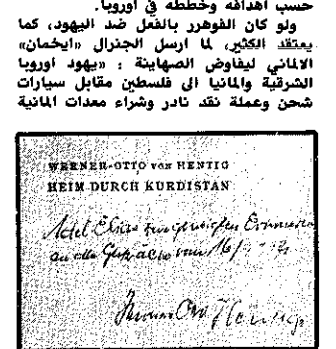 حسب اهدافه وخططه في اوروبا.
ولو كان الفوهرر بالفعل ضد اليهود، كما
يعتقد الكثير، لما ارسل الجنرال «ايخمان»
الالماني ليفاوض الصهاينة : «يهود اوروبا
الشرقية والمانيا الى فلسطين مقابل سيارات
شحن وعملة نقد نادر وشراء معدات المانية
WERNER-OTTO VON HENTIG
HEIM DURCH KURDISTAN
Adel
an die Gespräche vom 16/